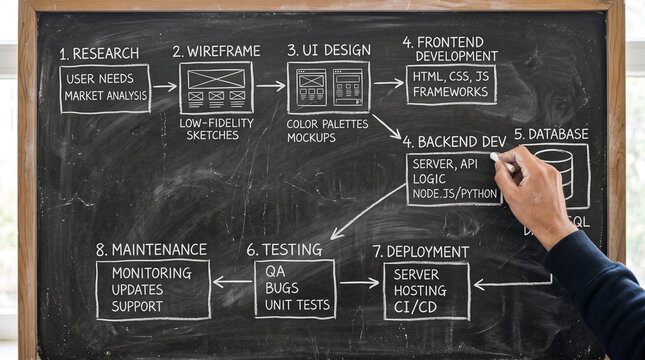 1. RESEARCH
USER NEEDS
MARKET ANALYSIS
2. WIREFRAME
LOW-FIDELITY
SKETCHES
3. UI DESIGN
COLOR PALETTES
MOCKUPS
4. FRONTEND
DEVELOPMENT
HTML, CSS, JS
FRAMEWORKS
4. BACKEND DEV
SERVER, API
LOGIC
NODE.JS/PYTHON
5. DATABASE
6. TESTING
QA
BUGS
UNIT TESTS
7. DEPLOYMENT
SERVER
HOSTING
CI/CD
8. MAINTENANCE
MONITORING
UPDATES
SUPPORT